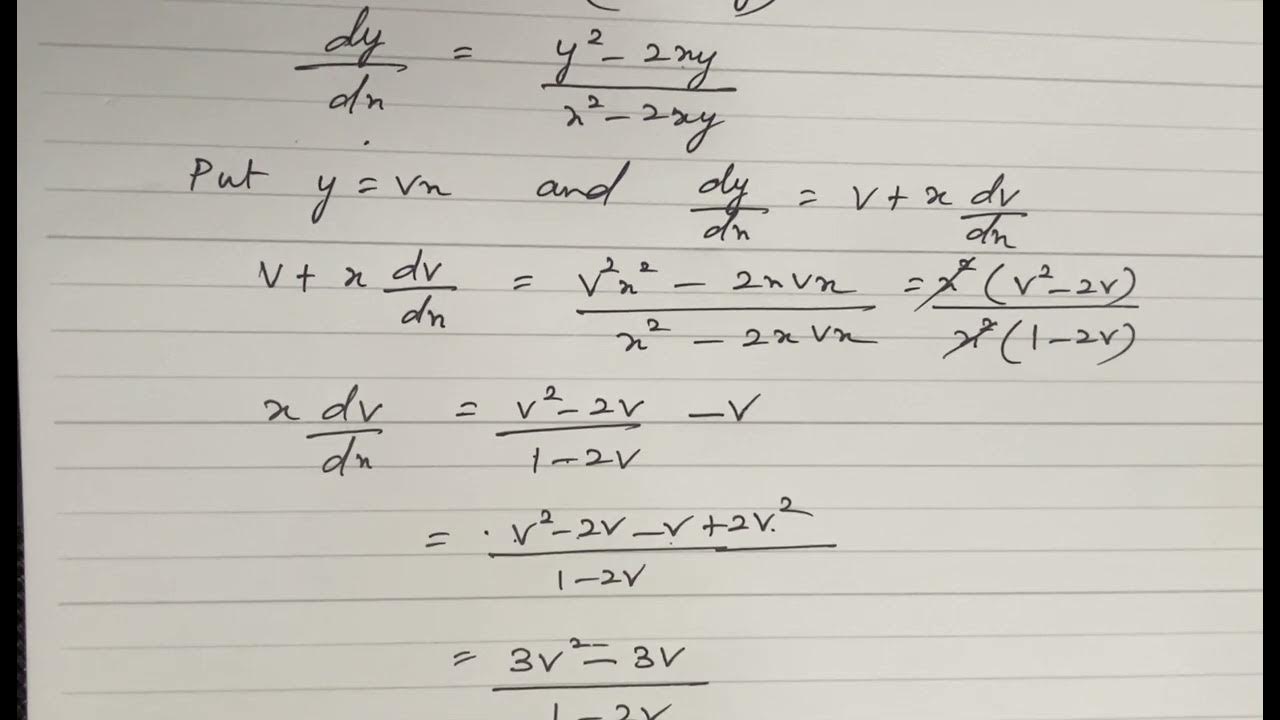 dy/dx = (y² - 2xy)/(x² - 2xy)
Put y = vx and dy/dx = v + x dv/dx
v + x dv/dx = (v²x² - 2x vx)/(x² - 2x vx) = x²(v² - 2v)/x²(1 - 2v)
x dv/dx = (v² - 2v)/(1 - 2v) - v
= (v² - 2v - v + 2v²)/(1 - 2v)
= (3v² - 3v)/(1 - 2v)